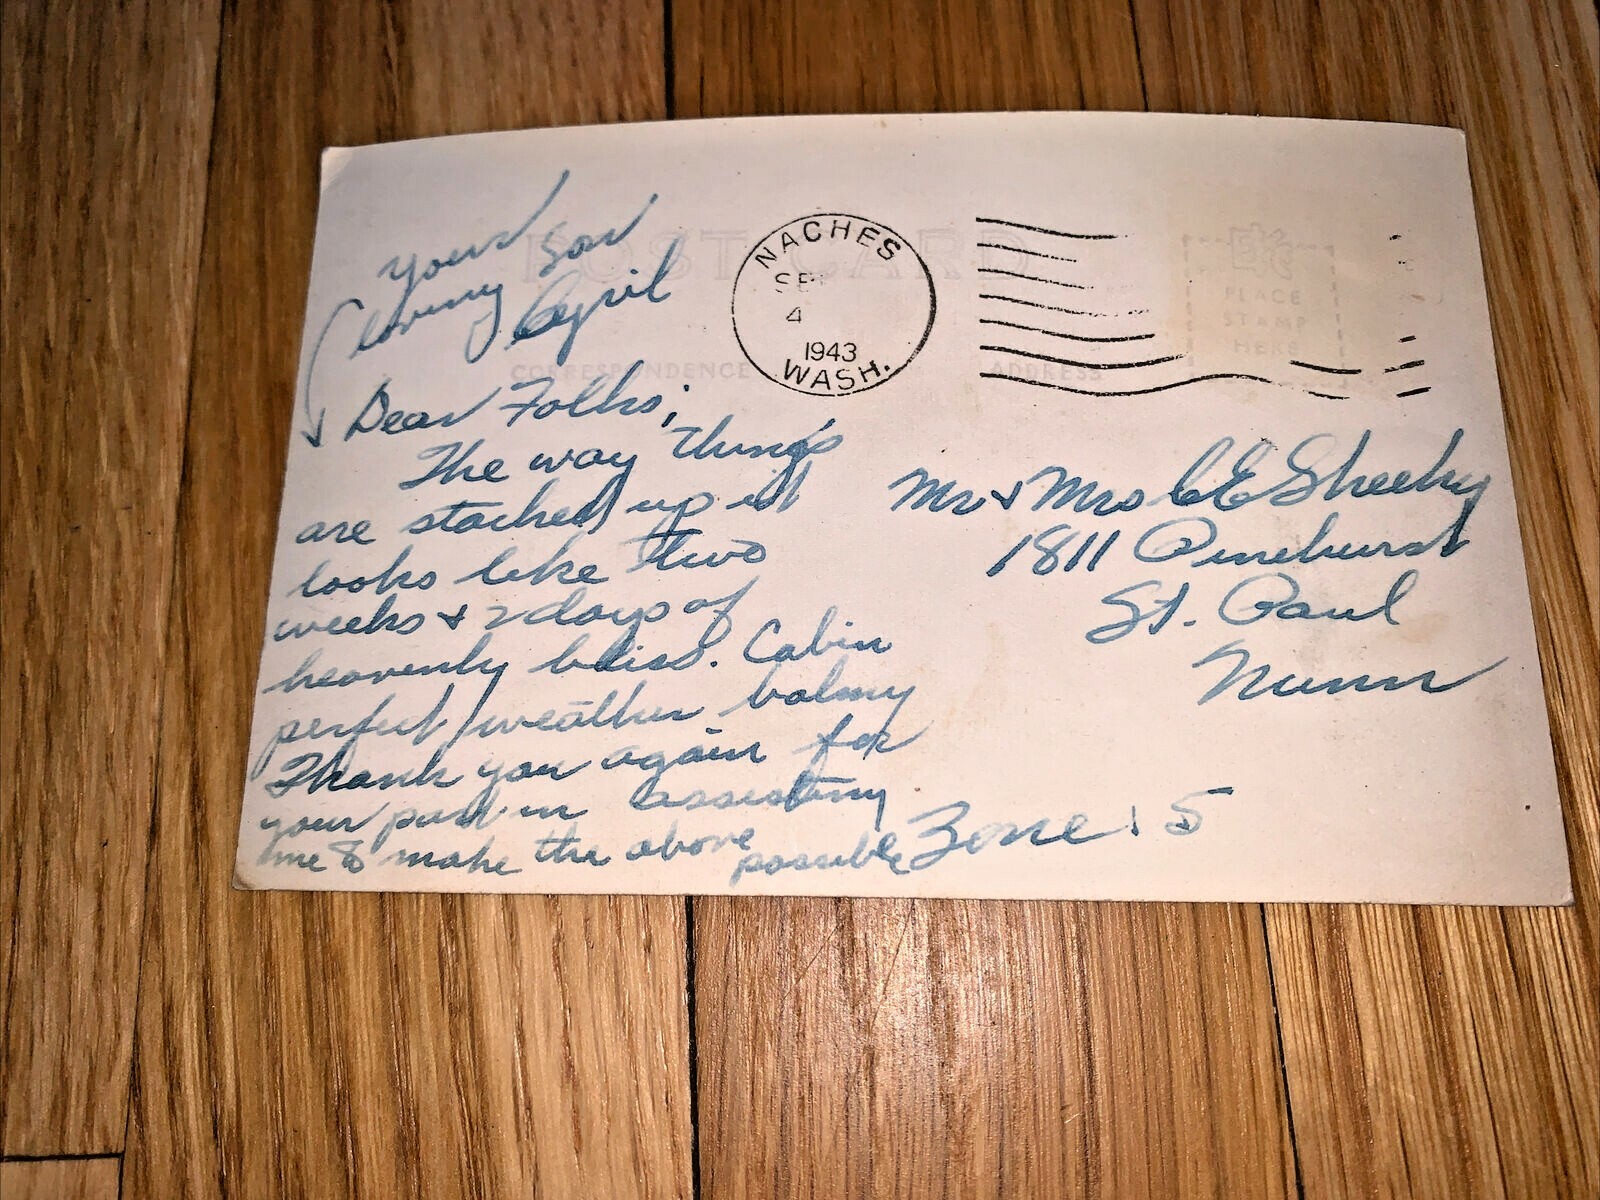 POST CARD
NACHES
SEP
4
1943
WASH.
PLACE
STAMP
HERE
CORRESPONDENCE
ADDRESS
Dear Folks;
The way things
are stacked up it
looks like two
weeks & 2 days of
heavenly bliss. Cabin
perfect, weather balmy
Thank you again for
your part in assisting
me to make the above
possible
Your
loving Son
Cyril
Mr & Mrs C E Sheehy
1811 Pinehurst
St. Paul
Minn
Zone: 5